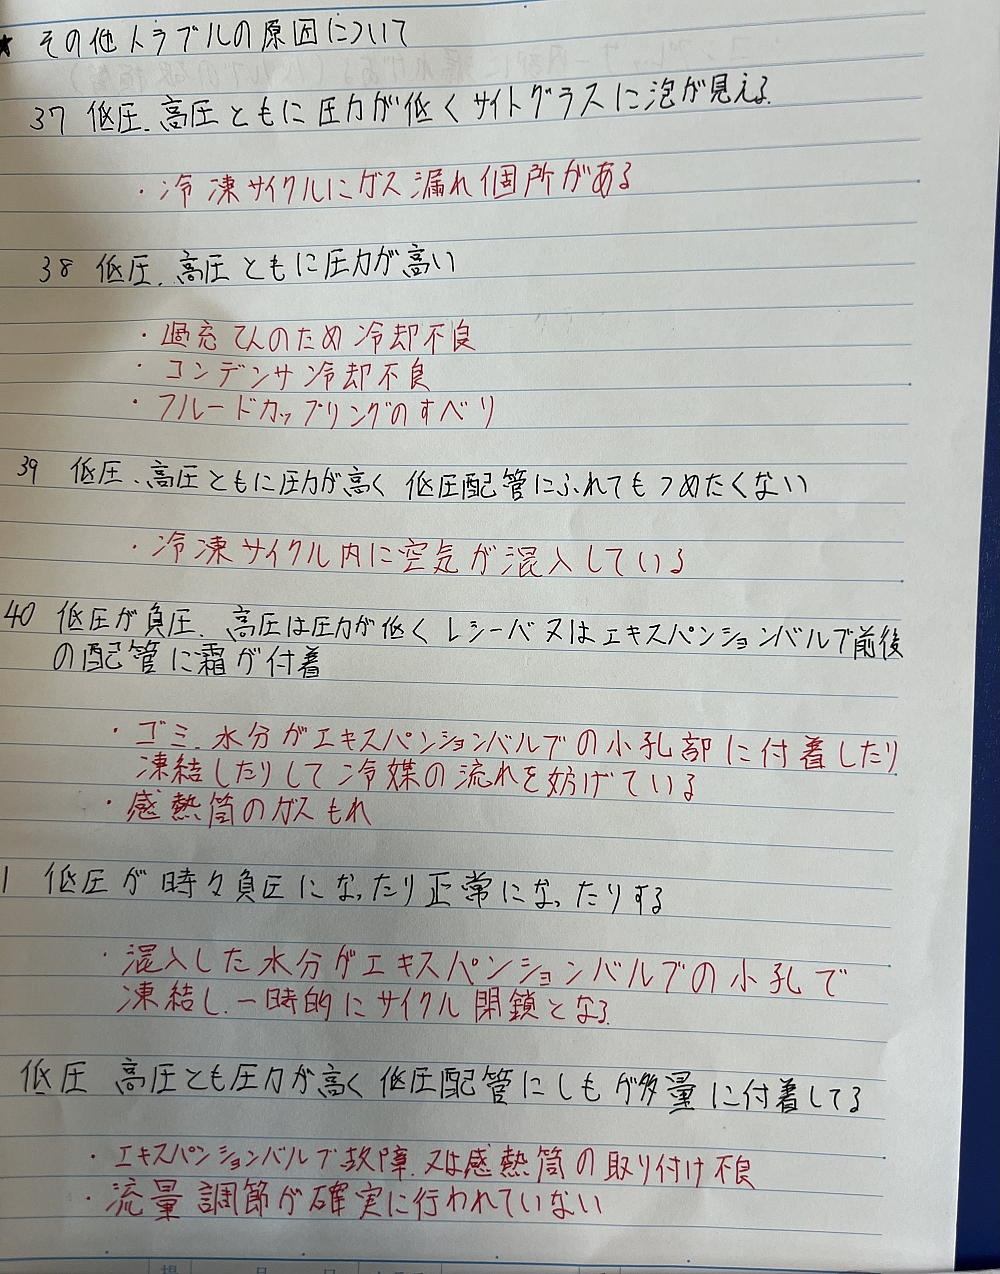 ★ その他トラブルの原因について
37 低圧、高圧ともに圧力が低くサイトグラスに泡が見える。
・冷凍サイクルにガス漏れ個所がある
38 低圧、高圧ともに圧力が高い
・過充てんのため冷却不良
・コンデンサ冷却不良
・フルードカップリングのすべり
39 低圧、高圧ともに圧力が高く 低圧配管にふれてもつめたくない
・冷凍サイクル内に空気が混入している
40 低圧が負圧、高圧は圧力が低くレシーバ又はエキスパンションバルブ前後
の配管に霜が付着
・ゴミ、水分がエキスパンションバルブの小孔部に付着したり
凍結したりして冷媒の流れを妨げている
・感熱筒のガスもれ
1 低圧が時々負圧になったり正常になったりする
・混入した水分がエキスパンションバルブの小孔で
凍結し、一時的にサイクル閉鎖となる。
低圧 高圧とも圧力が高く 低圧配管にしもが多量に付着してる
・エキスパンションバルブ故障、又は感熱筒の取り付け不良
・流量調節が確実に行われていない